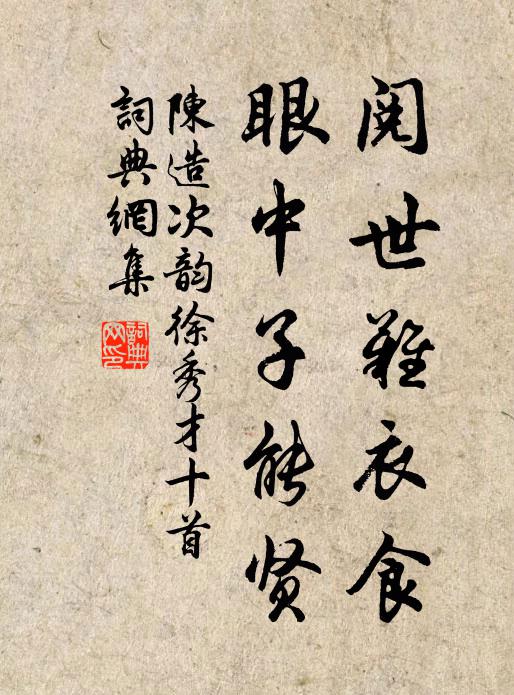 阅世難衣食
眼中子能贤
陳造次韵徐秀才十首
詞典網集
詞典網印